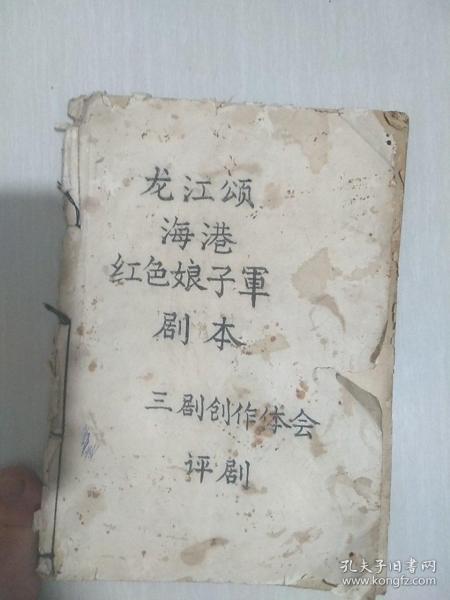 龙江颂
海港
红色娘子軍
剧本
三剧创作体会
评剧
孔夫子旧书网
www.kongfz.com